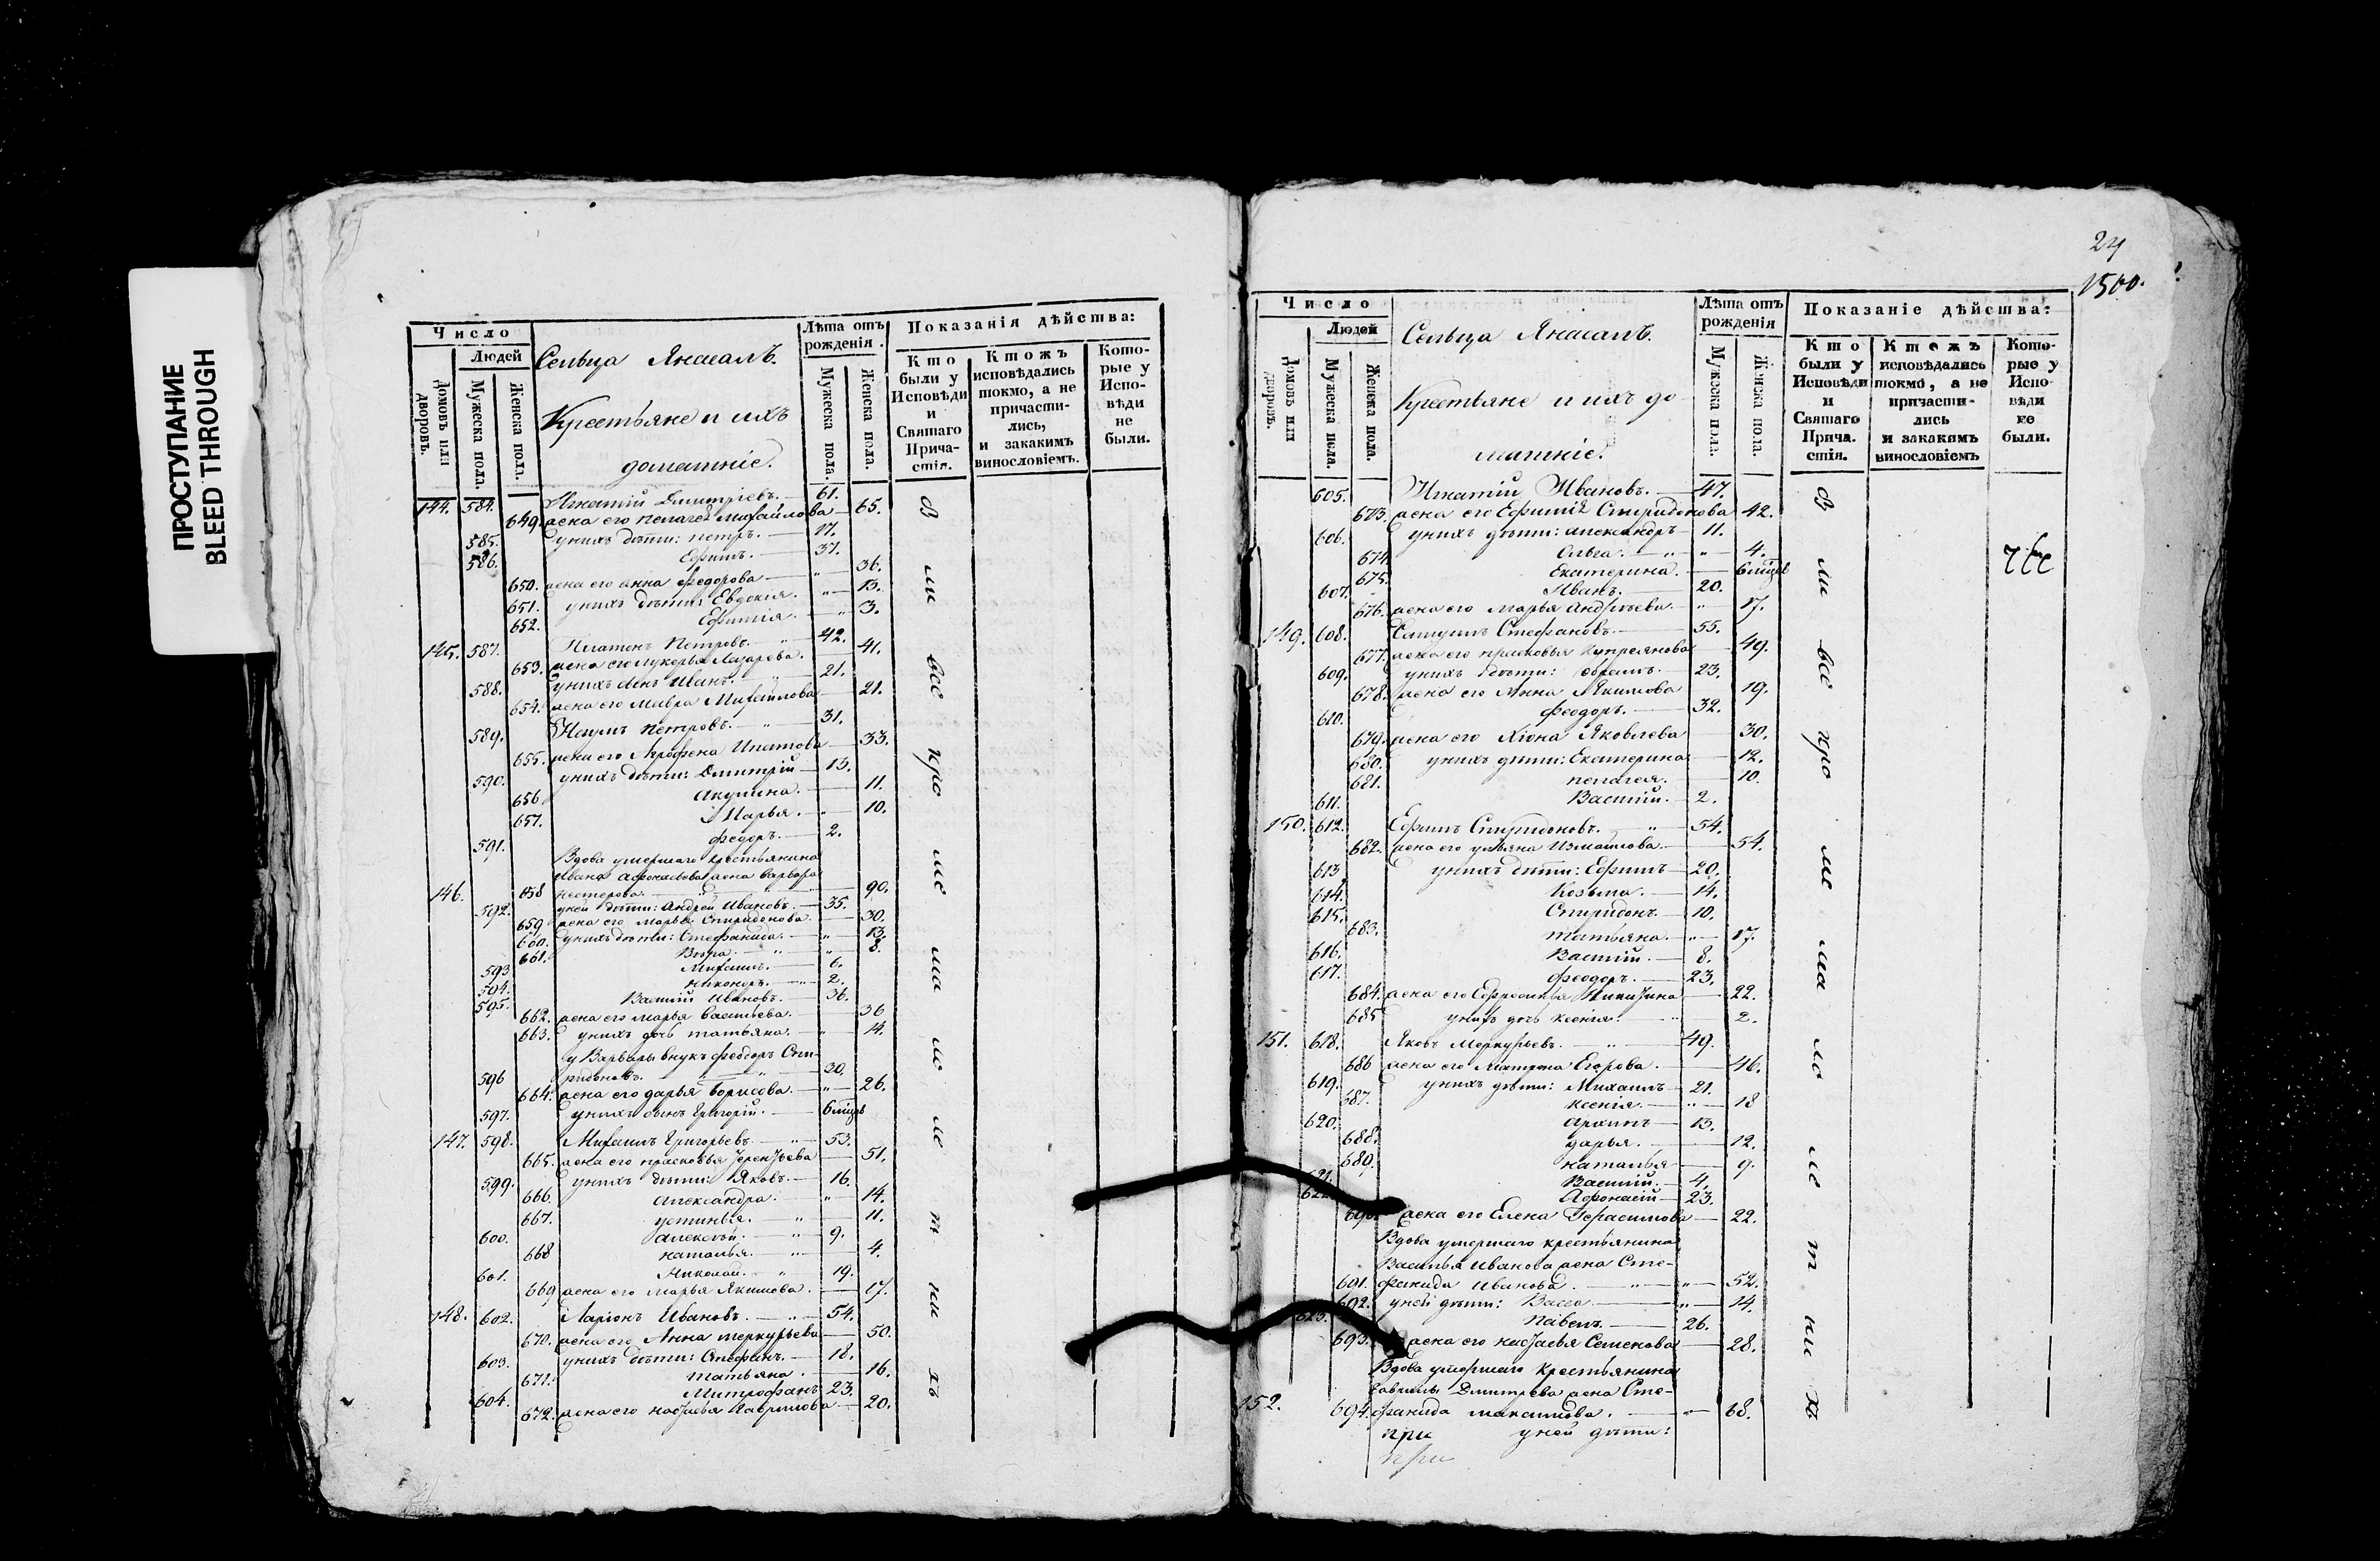 ПРОСТУПАНИЕ
BLEED THROUGH
Число
Людей
Домовъ или дворовъ.
Мужеска пола.
Женска пола.
Сельца
Крестьяне и ихъ
домашніе.
Лѣта отъ рожденія.
Мужеска пола.
Женска пола.
Показанія дѣйства:
Кто были у Исповѣди и Святаго Причастія.
Ктожъ исповѣдались токмо, а не причастились, и закакимъ винословіемъ.
Которые у Исповѣди не были.
144. 584. Игнатій Дмитріевъ. 61.
649. жена его Пелагея Михайлова 65.
585. у нихъ дѣти: Петръ. 17.
586. Ефимъ. 37.
650. жена его Анна Федорова 36.
651. у нихъ дѣти: Евдокія. 13.
652. Ефимія. 3.
145. 587. Платонъ Петровъ. 42.
653. жена его Лукерья Лазарева. 41.
588. у нихъ сынъ Иванъ. 21.
654. жена его Мавра Михайлова 21.
589. Наумъ Петровъ. 31.
655. жена его Агрофена Ипатова 33.
590. у нихъ дѣти: Дмитрій 13.
656. Акулина. 11.
657. Марья. 10.
591. Федоръ. 2.
Вдова умершаго крестьянина
Ивана Афонасьева жена Варвара
146. 658 Нестерова. 90.
592. у ней дѣти: Андрей Ивановъ. 35.
659 жена его Марья Спиридонова. 30.
660. у нихъ дѣти: Стефанида. 13.
661. Вѣра. 8.
593 Михаилъ. 6.
594. Никоноръ. 2.
595. Василій Ивановъ. 36.
662. жена его Марья Васильева. 36
663. у нихъ дочь Татьяна. 14.
у Варвары внукъ Феодоръ Спи-
596 ридоновъ. 30.
664. жена его Дарья Борисова. 26.
597. у нихъ сынъ Григорій. 6 мѣцъ
147. 598. Михаилъ Григорьевъ. 53.
665. жена его Прасковья Терентьева 51.
599. у нихъ дѣти: Яковъ. 16.
666. Александра. 14.
667. Устинья. 11.
600. Алексѣй. 9.
668 Наталья. 4.
601. Николай. 19.
669 жена его Марья Якимова. 17.
148. 602. Ларіонъ Ивановъ. 54.
670. жена его Анна Меркурьева 50.
603. у нихъ дѣти: Стефанъ. 18.
671. Татьяна. 16.
604. Митрофанъ 23.
672. жена его Настасья Гаврилова 20.
24
1500.
Число
Людей
Домовъ или дворовъ.
Мужеска пола.
Женска пола.
Сельца
Крестьяне и ихъ до-
машніе.
Лѣта отъ рожденія
Мужеска пола.
Женска пола.
Показаніе дѣйства:
Кто были у Исповѣди и Святаго Причастія.
Ктожъ исповѣдались токмо, а не причастились и закакимъ винословіемъ
Которые у Исповѣди не были.
605. Игнатій Ивановъ. 47.
673. жена его Ефимія Спиридонова 42.
606. у нихъ дѣти: Александръ 11.
674. Ольга. 4.
675. Екатерина. 6 мѣцъ
607. Иванъ. 20.
676. жена его Марья Андрѣева. 17.
149. 608. Стефановъ. 55.
677. жена его Прасковья Купреянова 49.
609. у нихъ дѣти: 23.
678. жена его Анна Якимова 19.
610. Феодоръ. 32.
679. жена его Хіона Яковлева 30.
680. у нихъ дѣти: Екатерина 12.
681. Пелагея. 10.
611. Василій. 2.
150. 612. Ефимъ Спиридоновъ. 54.
682. жена его Ульяна Измаилова. 54.
613 у нихъ дѣти: Ефимъ 20.
614. Козьма. 14.
615. Спиридонъ. 10.
683. Татьяна. 17.
616. Василій. 8.
617. Феодоръ. 23.
684. жена его Ефросинья Никитина 22.
685 у нихъ дочь Ксенія. 2.
151. 618. Яковъ Меркурьевъ. 49.
686 жена его Матрона Егорова. 46.
619. у нихъ дѣти: Михаилъ 21.
687. Ксенія. 18
620. Архипъ 13.
688. Дарья. 12.
689. Наталья 9.
621. Василій. 4.
622. Афонасій 23.
690. жена его Елена Герасимова 22.
Вдова умершаго крестьянина
Василья Иванова жена Сте-
691. фанида Иванова. 52.
692. у ней дѣти: Васса 14.
623. Павелъ. 26.
693. жена его Настасья Семенова 28.
Вдова умершаго крестьянина
Гаврилы Дмитрева жена Сте-
152. 694. фанида Максимова. 68.
при у ней дѣти:
при